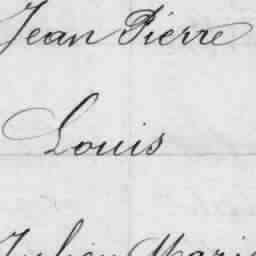 Jean Pierre
Louis
Julien Marie